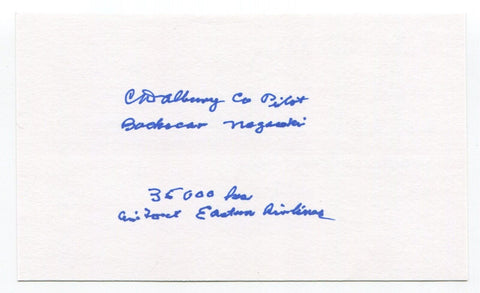 CD Albury Co Pilot
Bockscar Nagasaki
35000 hrs
Air Force Eastern Airlines